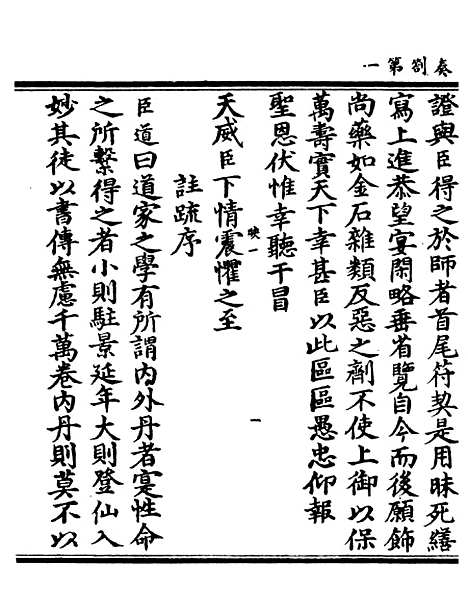 奏劄第一
證與臣得之於師者首尾符契是用昧死繕
寫上進恭望宴閑略垂省覽自今而後願飾
尚藥如金石雜類反惡之劑不使上御以保
萬壽實天下幸甚臣以此區區愚忠仰報
聖恩伏惟幸聽干冒
天威臣下情震懼之至
映一
一
註疏序
臣道曰道家之學有所謂内外丹者寔性命
之所繫得之者小則駐景延年大則登仙入
妙其徒以書傳無慮千萬卷内丹則莫不以